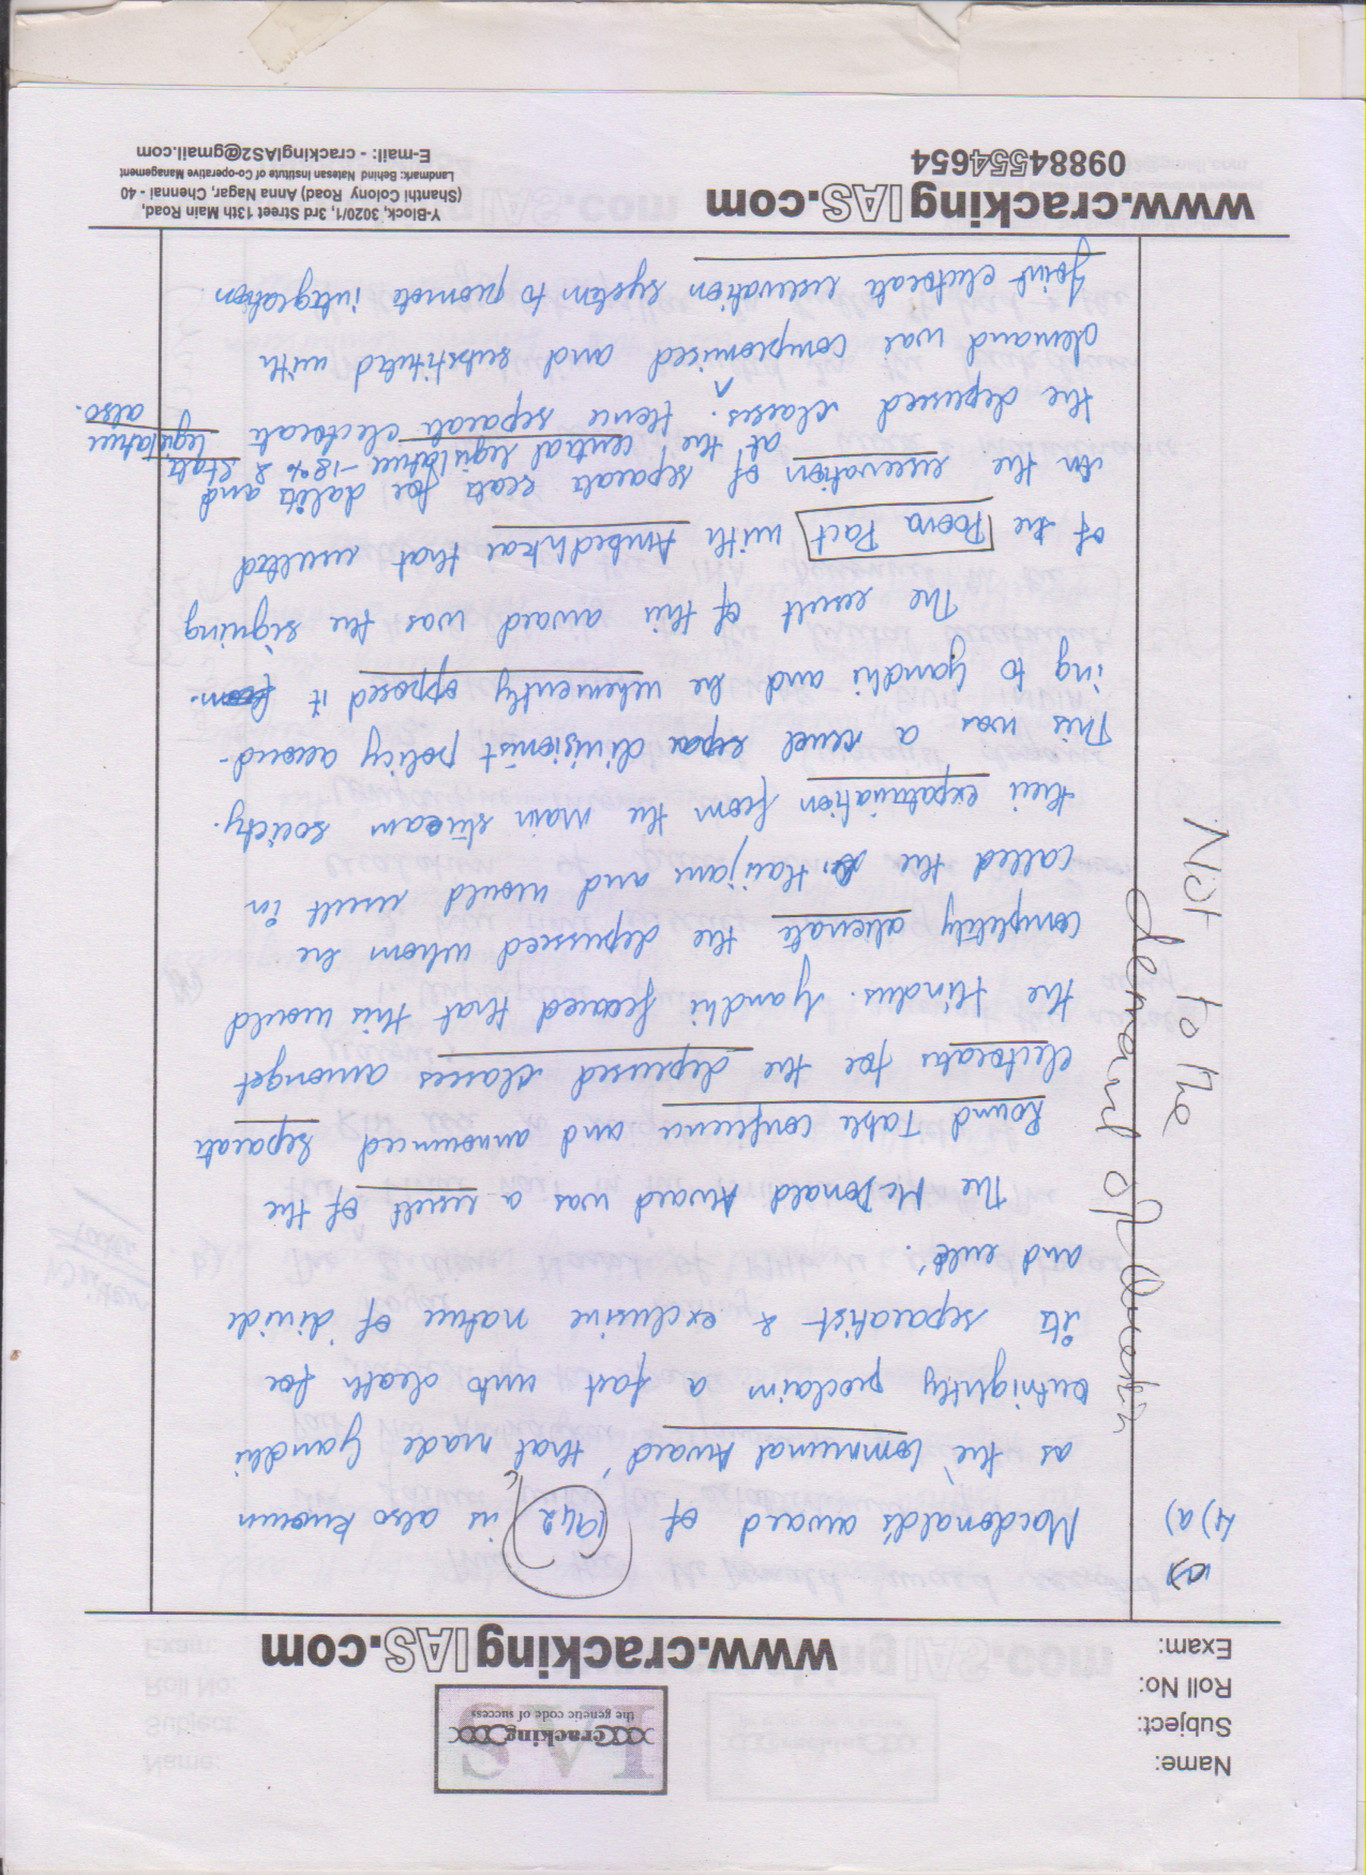 Name:
Subject:
Roll No:
Exam:
IAS
cracking
the genetic code of success
www.crackingIAS.com
4) a) Macdonald's award of 1942, is also known
as the 'Communal Award' that made Gandhi
outrightly proclaim a fast unto death for
its separatist & exclusive nature of 'divide
and rule'.
The McDonald Award was a result of the
Round Table conference and announced separate
electorates for the depressed classes amongst
the Hindus. Gandhi feared that this would
completely alienate the depressed whom he
called the Harijans and would result in
their expatriation from the main stream society.
This was a cruel divisionist policy accord-
ing to Gandhi and he vehemently opposed it
The result of this award was the signing
of the Poona Pact with Ambedhkar that resulted
in the reservation of separate seats for dalits and
at the central legislature - 18% & state legislature also.
the depressed classes. Hence separate electorate
demand was compromised and substituted with
Joint electorate reservation system to promote integration.
Not to the
demand of Question
www.crackingIAS.com
09884554654
Y-Block, 3020/1, 3rd Street 13th Main Road,
(Shanthi Colony Road) Anna Nagar, Chennai - 40
Landmark: Behind Natesan Institute of Co-operative Management
E-mail: - crackingIAS2@gmail.com